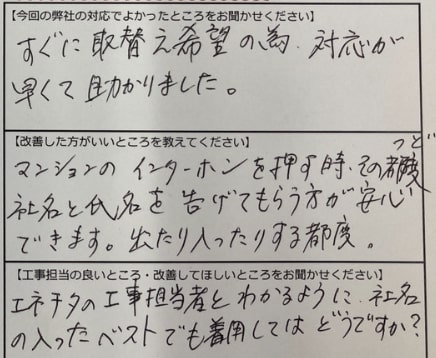 【今回の弊社の対応でよかったところをお聞かせください】
すぐに取替え希望の為、対応が
早くて助かりました。
【改善した方がいいところを教えてください】
つど
マンションのインターホンを押す時、その都度
社名と氏名を告げてもらう方が安心
できます。出たり入ったりする都度。
【工事担当の良いところ・改善してほしいところをお聞かせください】
エネチタの工事担当者とわかるように、社名
の入ったベストでも着用してはどうですか?